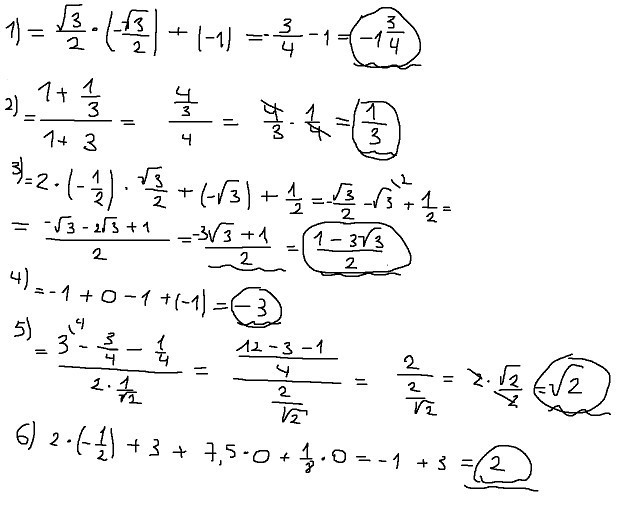 1) = √3/2 · (-√3/2) + (-1) = -3/4 - 1 = -1 3/4
2) = (1 + 1/3)/(1 + 3) = (4/3)/4 = 4/3 · 1/4 = 1/3
3) = 2 · (-1/2) · √3/2 + (-√3) + 1/2 = -√3/2 - √3 \2 + 1/2 =
= (-√3 - 2√3 + 1)/2 = (-3√3 + 1)/2 = (1 - 3√3)/2
4) = -1 + 0 - 1 + (-1) = -3
5) = (3 \4 - 3/4 - 1/4)/(2 · 1/√2) = ((12 - 3 - 1)/4)/(2/√2) = 2/(2/√2) = 2 · √2/2 = √2
6) 2 · (-1/2) + 3 + 7,5 · 0 + 1/8 · 0 = -1 + 3 = 2